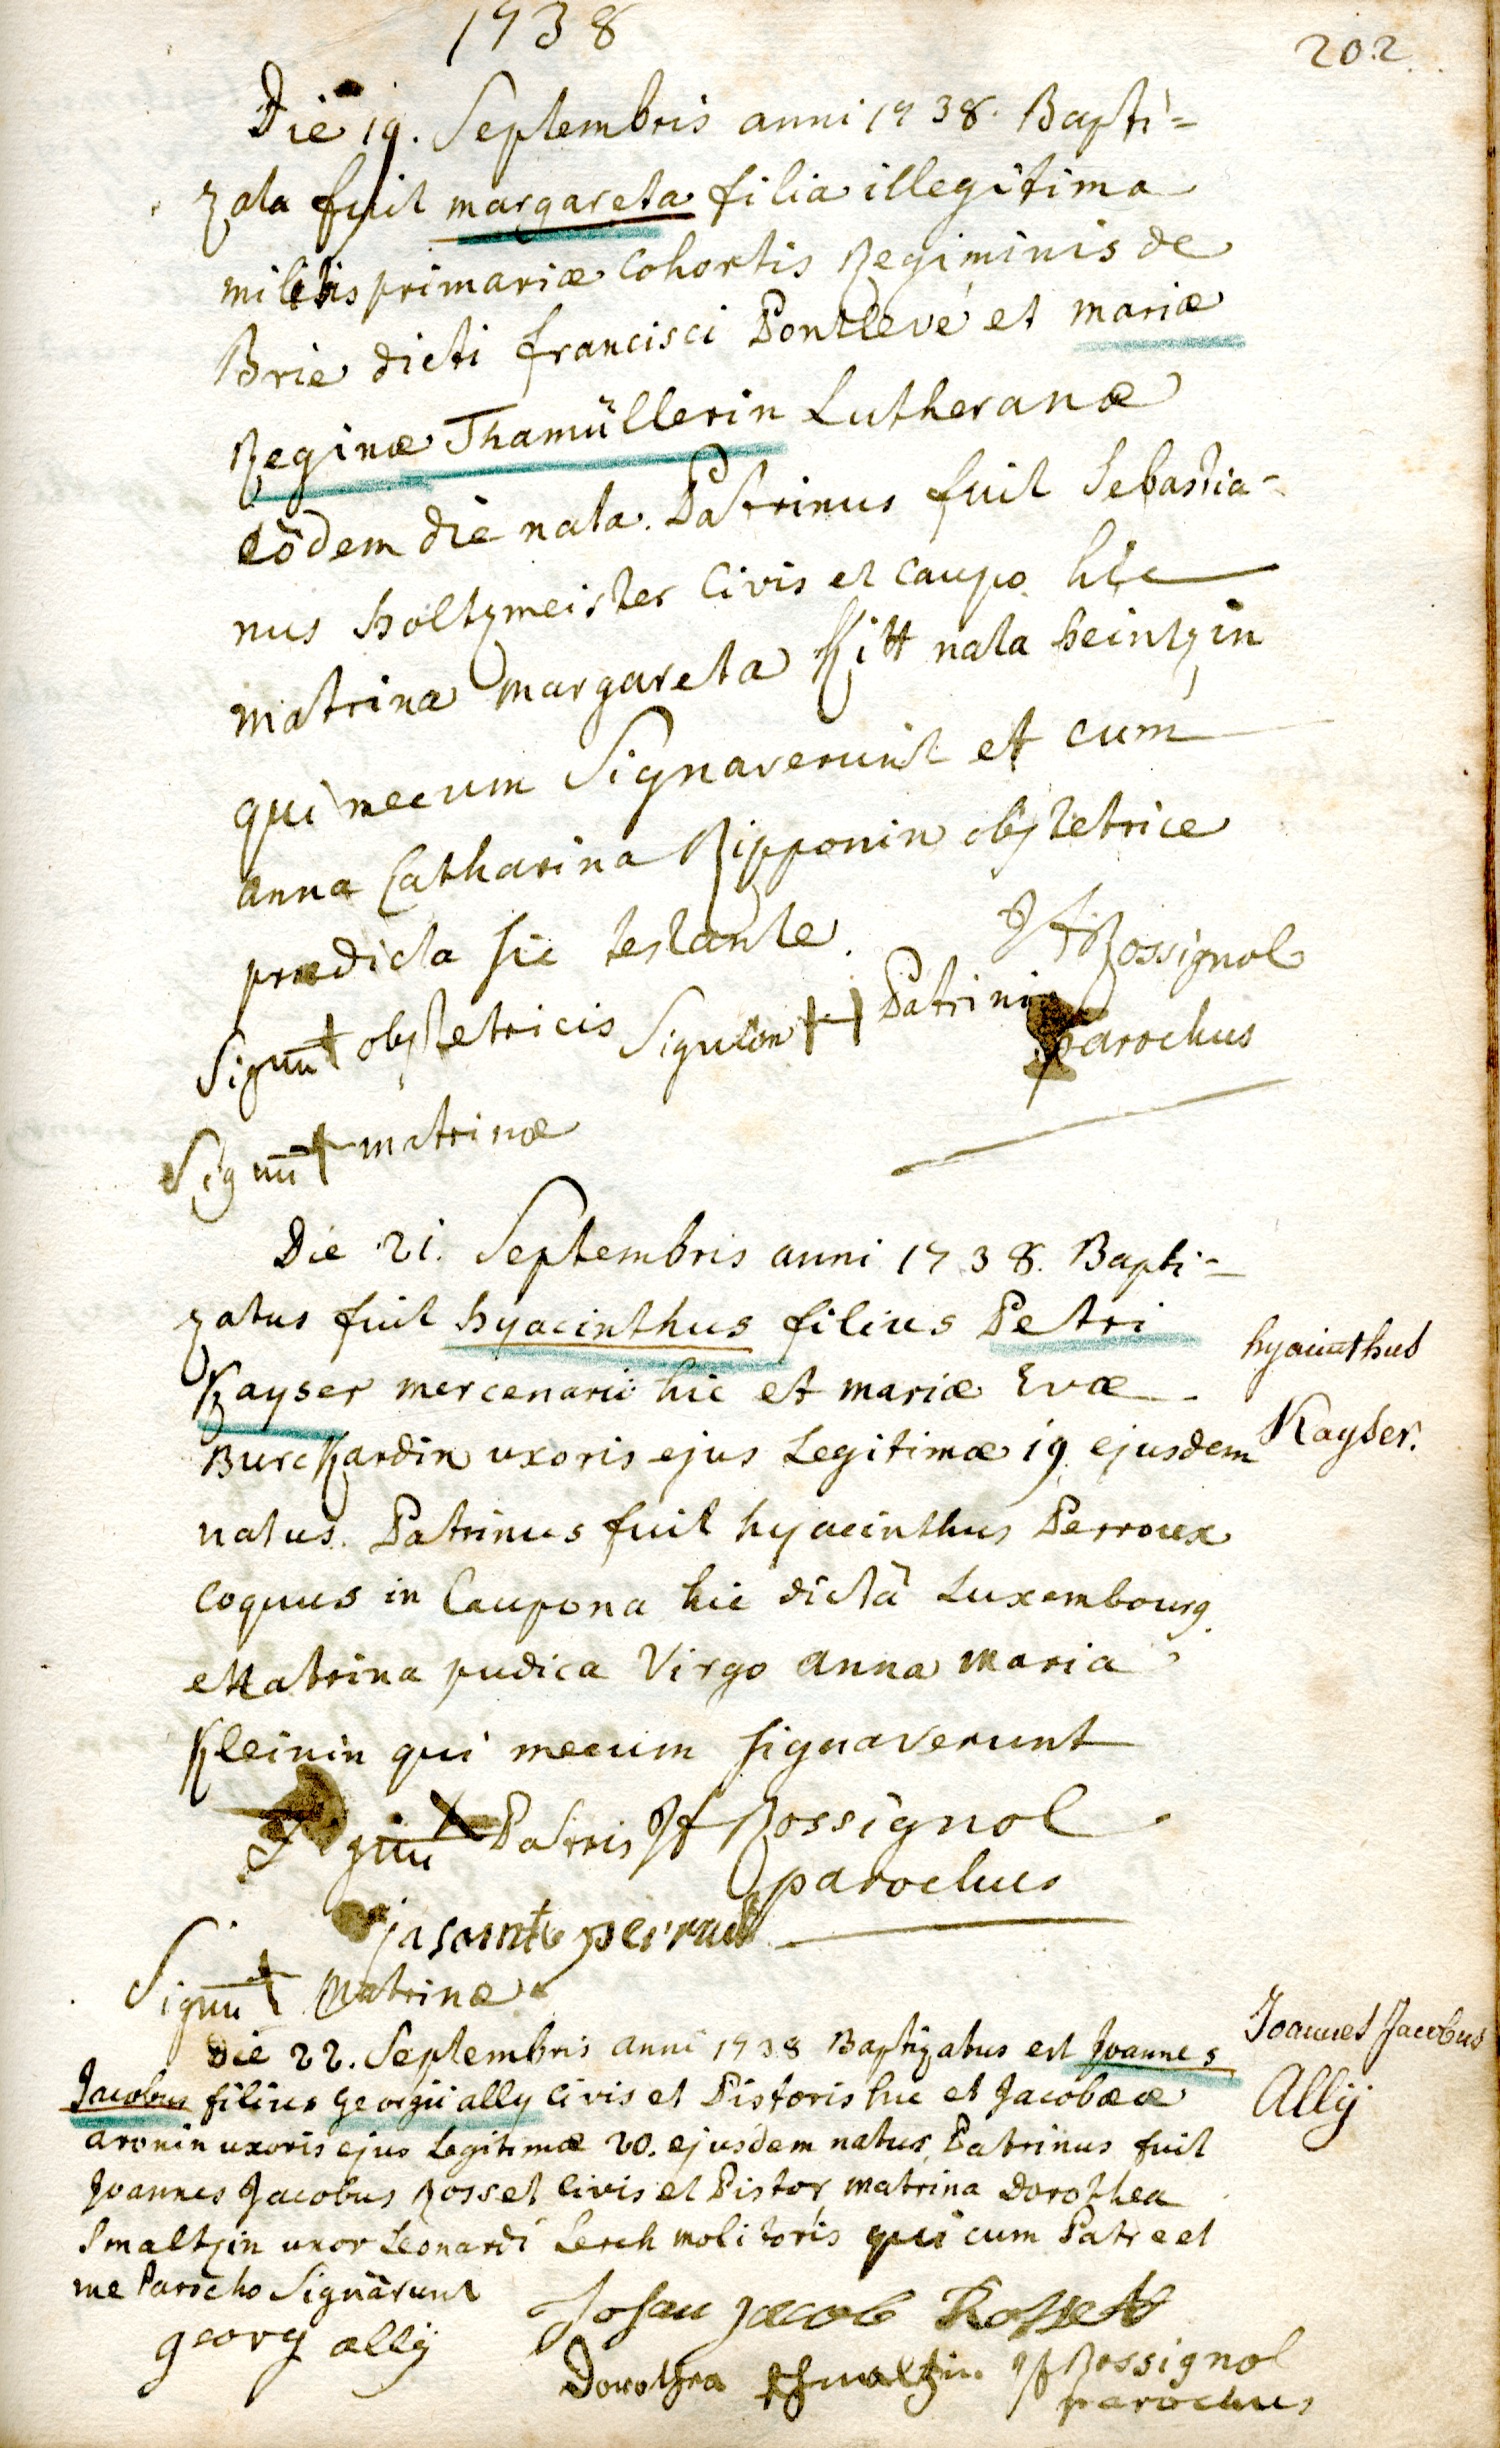 1738
202.
Die 19. Septembris anni 1738. Bapti=
zata fuit margareta filia illegitima
militis primariæ Cohortis Regiminis de
Brie dicti francisci Pontlevé et mariæ
Reginæ Thamüllerin Lutheranæ
eôdem die nata. Patrinus fuit Sebastia-
nus holtzmeister Civis et Caupo hic
matrina margareta Kitt nata heintzin
qui mecum Signaverunt et cum
anna Catharina Ripponin obstetrice
prædicta sic testante.
JF Rossignol
parochus
Signũ + obstetricis Signũm H Patrini
Signũ + matrinæ
Die 21. Septembris anni 1738. Bapti-
zatus fuit hyacinthus filius Petri
Kayser mercenarii hic et mariæ Evæ
Burckardin uxoris ejus Legitimæ 19 ejusdem
natus. Patrinus fuit hyacinthus Perroux
coquus in Caupona hic dictâ Luxembourg.
Matrina pudica Virgo anna maria
Kleinin qui mecum signaverunt
hyacinthus
Kayser.
Signũ + Patris JF Rossignol
parochus
jasainte perrau
Signũ + Matrinæ
Die 22. Septembris anni 1738 Baptizatus est Joannes
Jacobus filius georgii ally Civis et Pistoris hic et Jacobææ
aronin uxoris ejus Legitimæ 20. ejusdem natus, Patrinus fuit
Joannes Jacobus Rosset Civis et Pistor, matrina Dorothea
Smaltzin uxor Leonardi Lerch molitoris qui cum Patre et
me Parocho Signârunt
Joannes Jacobus
Ally
georg ally
Johan Jacob Rossett
Dorothea schmaltzin. JF Rossignol
parochus